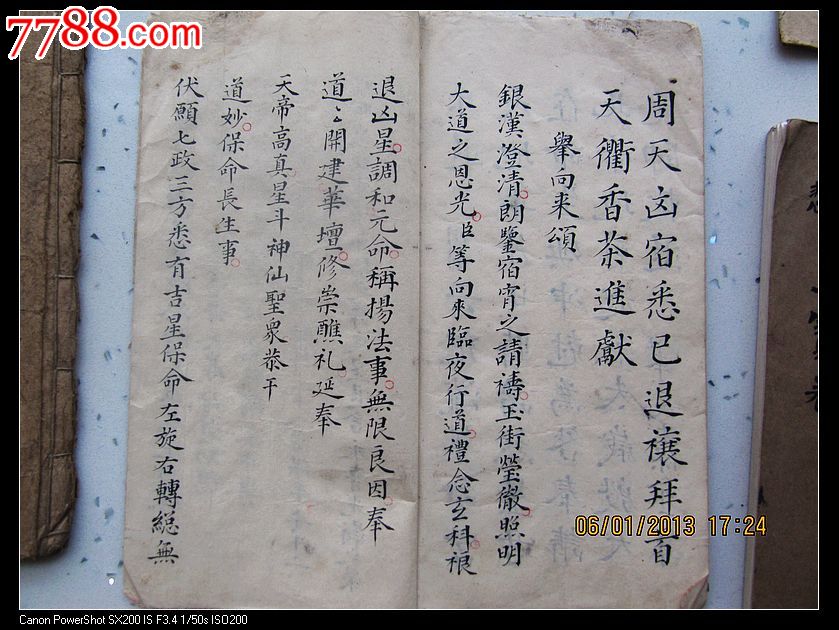 7788.com
中国收藏热线
周天凶宿悉已退禳拜首
天衢香茶進獻
舉向来頌
銀漢澄清朗鑒宿宵之請禱玉街瑩徹照明
大道之恩光臣等向來臨夜行道禮念玄科
退凶星調和元命稱揚法事無限良因奉
道〻開建華壇修崇醮礼延奉
天帝高真星斗神仙聖衆恭干
道妙保命長生事
伏願七政三方悉有吉星保命左旋右轉総無
06/01/2013 17:24
Canon PowerShot SX200 IS F3.4 1/50s ISO200